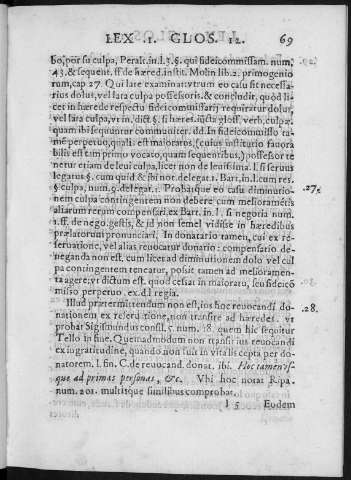 LEX .1. GLOS. 12. 69
bo, por su culpa, Peralt. in.l.3.§. qui fideicommissam. num.
43. & sequent. ff. de hæred. instit. Molin lib.2. primogenio
rum, cap 27. Qui late examinat vtrum eo casu sit necessa-
rius dolus, vel lata culpa possessoris, & concludit, quòd li-
cet in hærede respectu fideicommissarij requiratur dolus,
vel lata culpa, vt in, dict §. si hæres. iūcta gloss. verb. culpæ.
quam ibi sequuntur communiter. dd. In fideicommisso ta-
mē perpetuo, quali. est maioratus, (cuius institutio fauora
bilis est tam primo vocato, quam sequentibus,) possessor te
netur etiam de leui culpa, licet non de leuissima. l. si seruus
legatus §. cum quid & ibi not. delegat. 1. Bart, in.l. cum res.
§ culpa, num. 9. delegat. 1. Probatque eo casu diminutio-
nem culpa contingentem non debere cum melioramētis
aliarum rerum compensari, ex Bart. in.l. si negotia num.
1. ff. de nego. gestis, & id non semel vidisse in hæredibus
prælatorum pronunciari. In donatario tamen, cui ex re-
seruatione, vel alias reuocatur donatio: compensatio de-
neganda non est. cum licet ad diminutionem dolo vel cul
pa contingentem teneatur, possit tamen ad melioramen-
ta agere; vt dictum est. quod cessat in maioratu, seu fideicō
misso perpetuo. ex. d.l regia.
27.
Illud prætermittendum non est, ius hoc reuocandi do-
nationem ex reseruatione, non transire ad hæredes. vt
probat Sigismundus consil. 5. num. 18. quem hic sequitur
Tello in fine. Quemadmodum non transit ius reuocandi
ex ingratitudine, quando non fuit in vita is cepta per do-
natorem. l. fin. C. de reuocand. donat. ibi. Hoc tamen vs-
que ad primas personas, &c. Vbi hoc notat Ripa.
num. 201. multisque similibus comprobat.
28.
I 5 Eodem